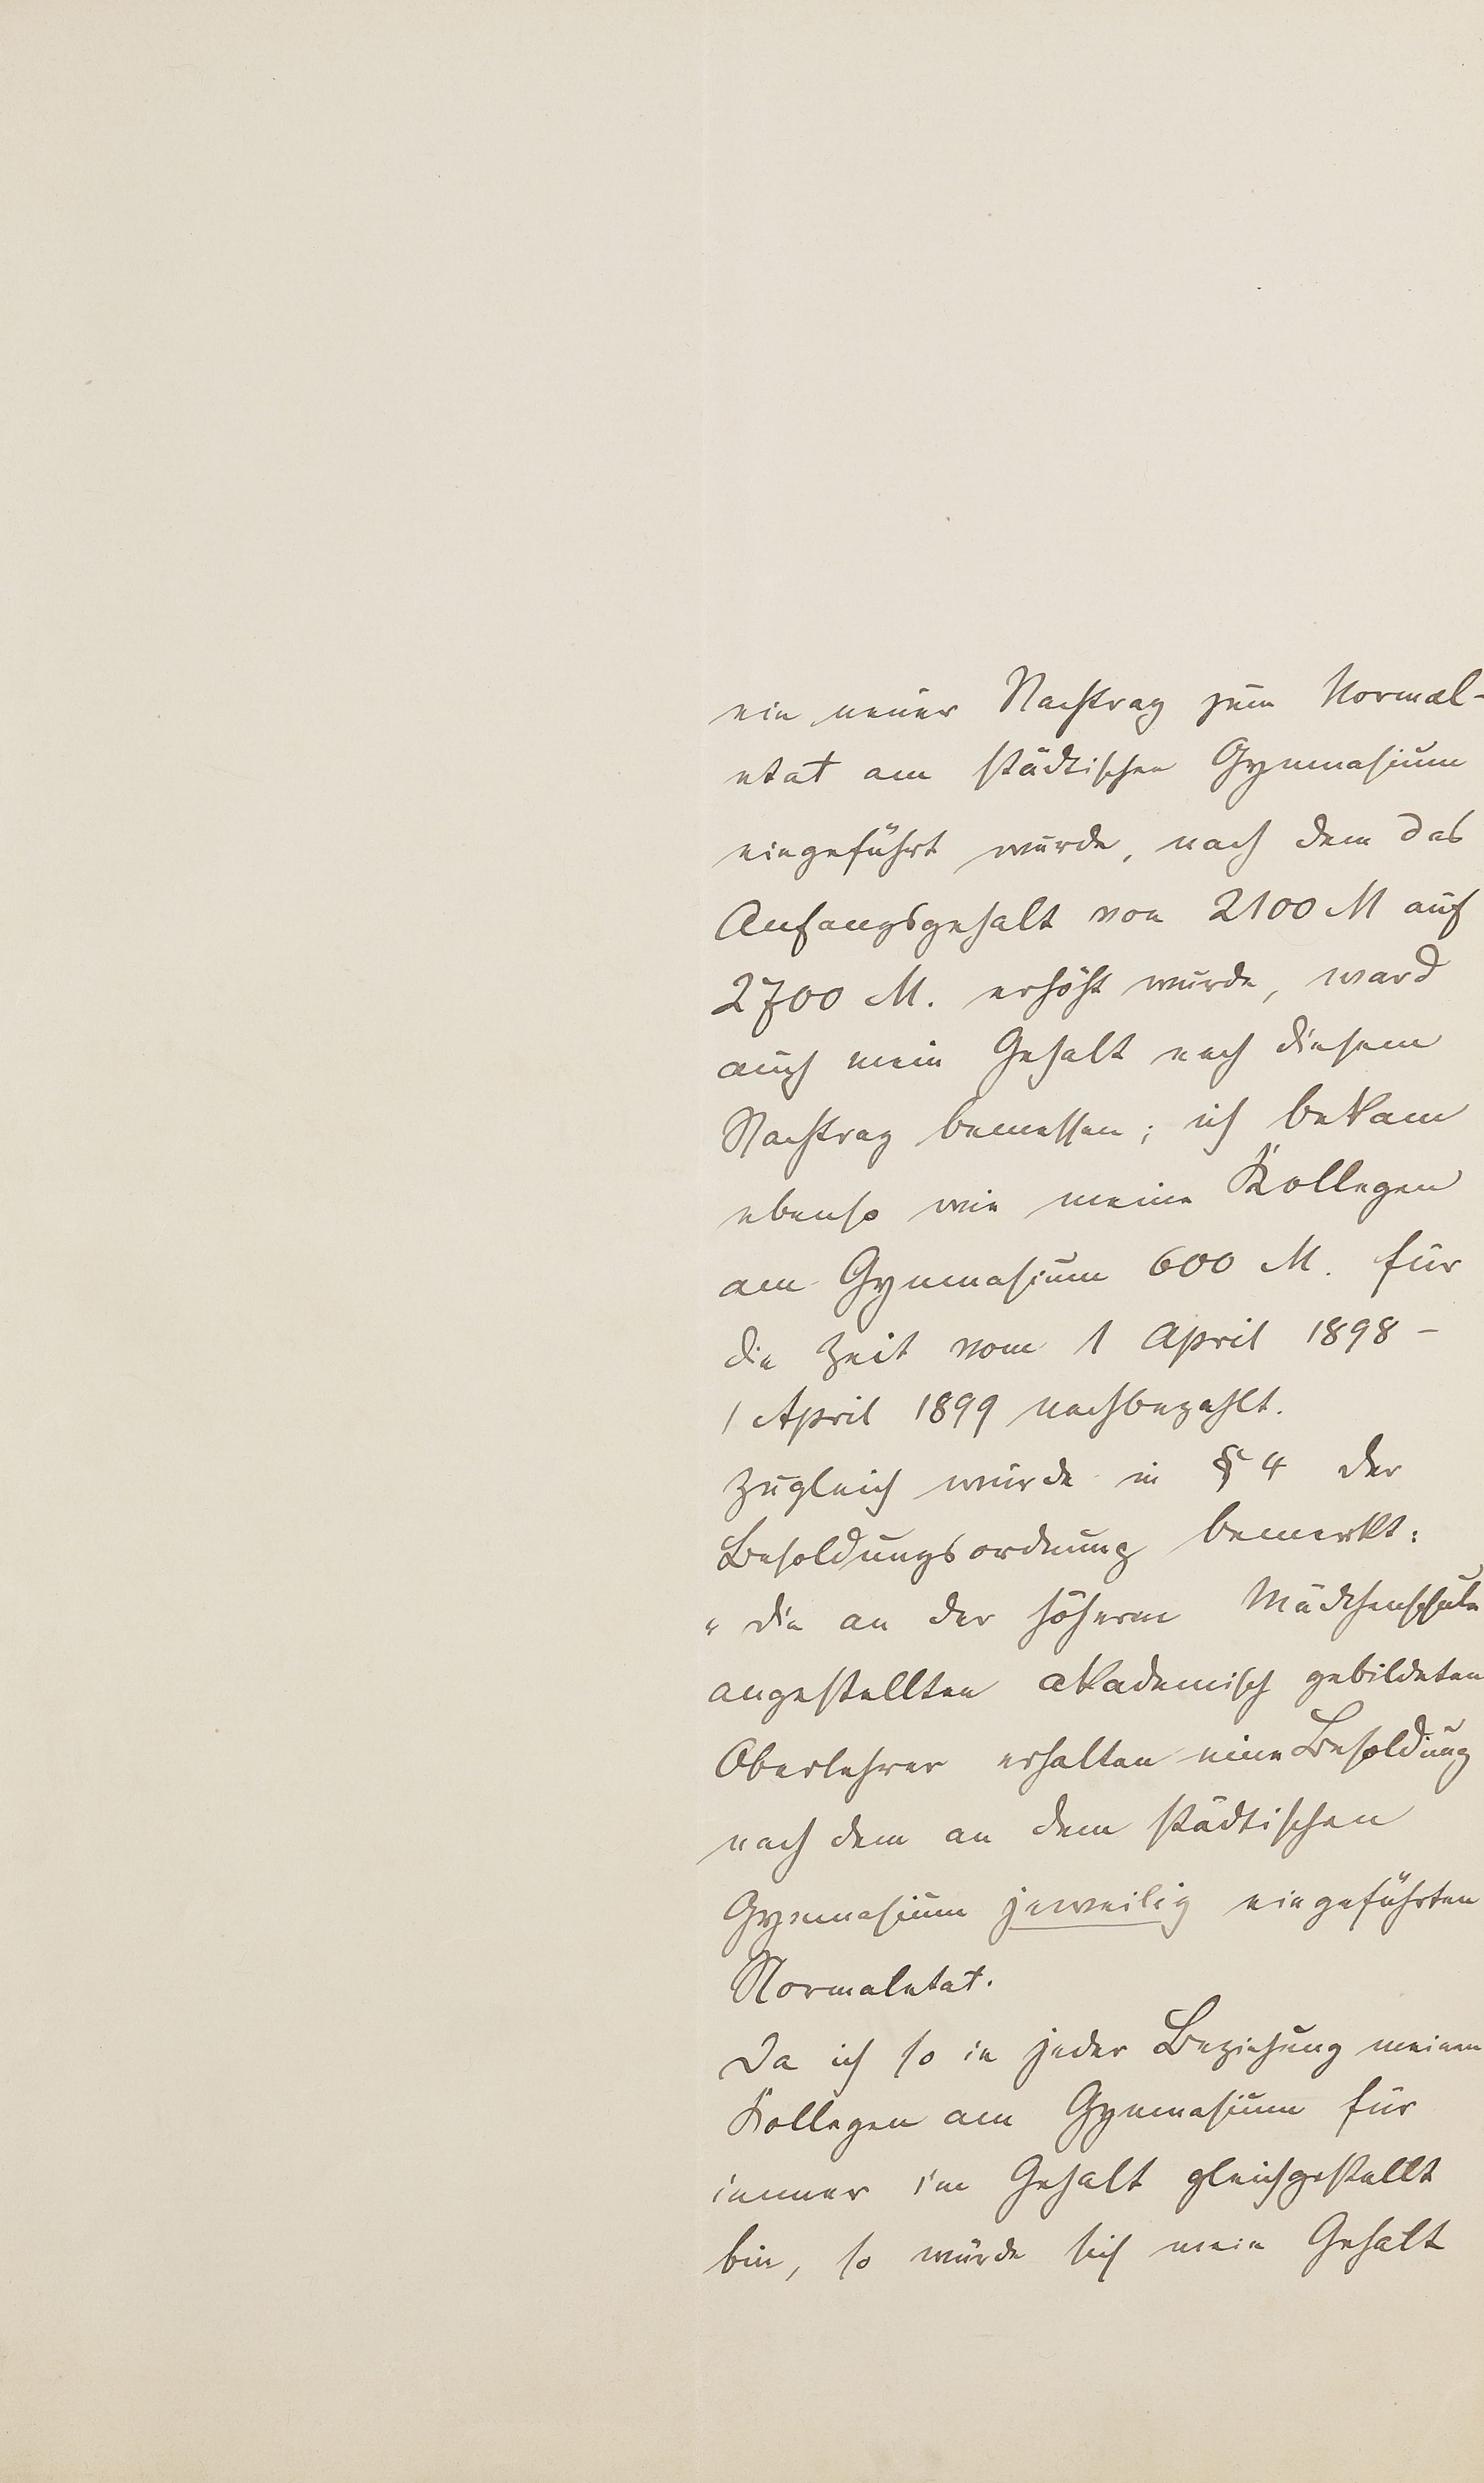 ein neuer Nachtrag zum Normal-
etat am städtischen Gymnasium
eingeführt wurde, nach dem das
Anfangsgehalt von 2100 M auf
2700 M. erhöht wurde, ward
auch mein Gehalt nach diesem
Nachtrag bemessen; ich bekam
ebenso wie meine Kollegen
am Gymnasium 600 M. für
die Zeit vom 1 April 1898 –
1 April 1899 nachbezahlt.
Zugleich wurde in § 4 der
Besoldungsordnung bemerkt:
„die an der höheren Mädchenschule
angestellten akademisch gebildeten
Oberlehrer erhalten eine Besoldung
nach dem an dem städtischen
Gymnasium jeweilig eingeführten
Normaletat.
Da ich so in jeder Beziehung meinen
Kollegen am Gymnasium für
immer im Gehalt gleichgestellt
bin, so würde sich mein Gehalt